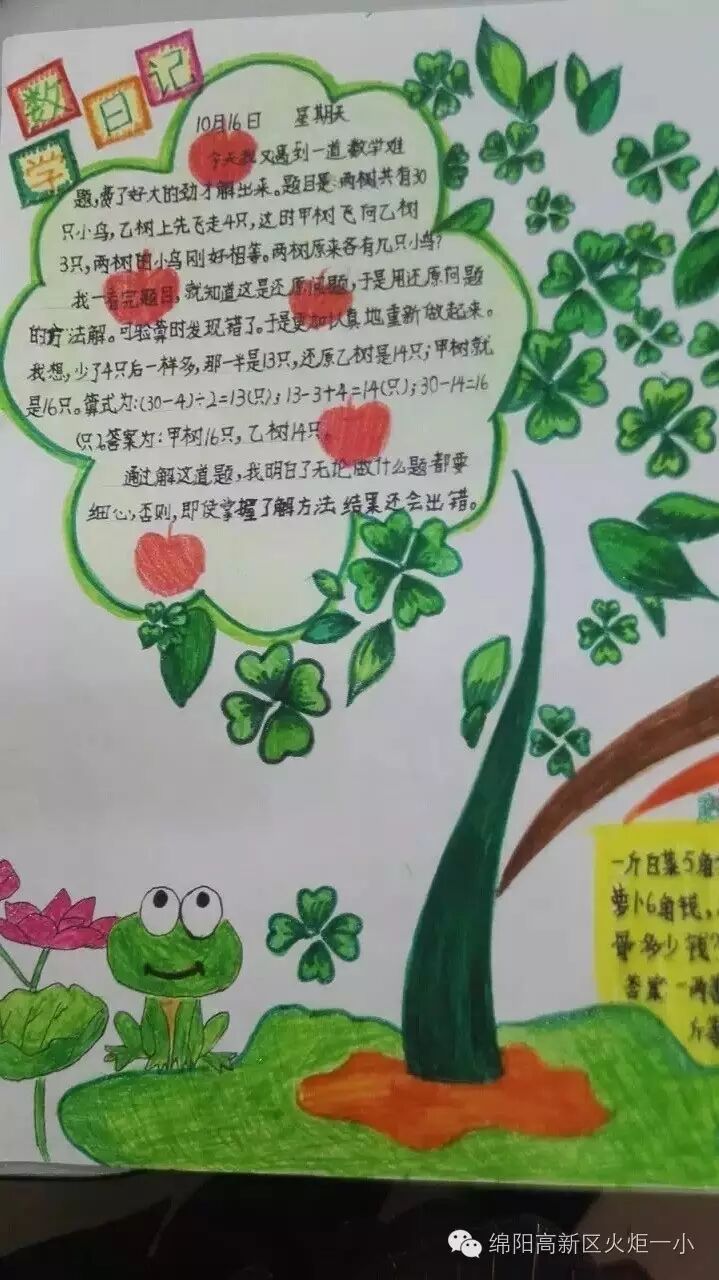 数学日记
10月16日 星期天
今天我又遇到一道数学难
题,费了好大的劲才解出来。题目是:两树共有30
只小鸟,乙树上先飞走4只,这时甲树飞向乙树
3只,两树的小鸟刚好相等。两树原来各有几只小鸟?
我一看完题目,就知道这是还原问题,于是用还原问题
的方法解。可验算时发现错了。于是更加认真地重新做起来。
我想,少了4只后一样多,那一半是13只,还原乙树是14只;甲树就
是16只。算式为:(30-4)÷2=13(只);13-3+4=14(只);30-14=16
(只)。答案为:甲树16只,乙树14只。
通过解这道题,我明白了无论做什么题都要
细心,否则,即使掌握了解方法,结果还会出错。
一斤白菜5角
萝卜6角钱,
要多少钱?
答案一两
斤
绵阳高新区火炬一小